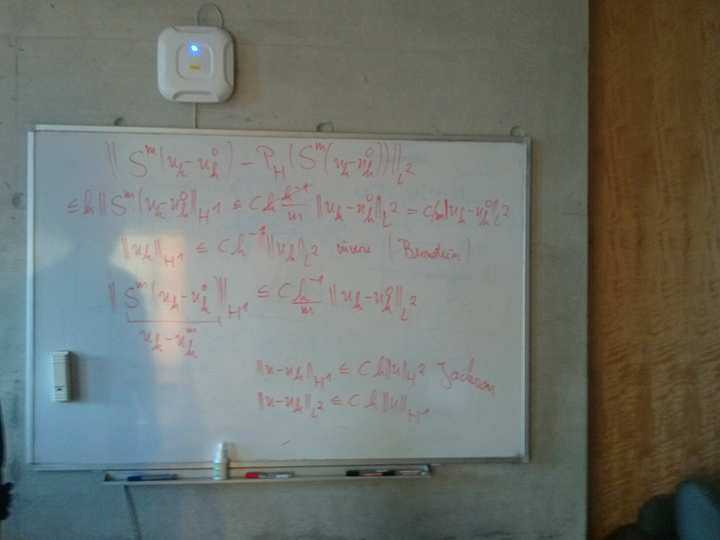 ‖ S^m(u_h − u_h^0) − P_H(S^m(u_h − u_h^0)) ‖_{L^2}
≤ h ‖ S^m(u_h − u_h^0 ‖_{H^1} ≤ C h h^{-1}/m ‖ u_h − u_h^0 ‖_{L^2} = C/m ‖ u_h − u_h^0 ‖_{L^2}
‖u_h‖_{H^1} ≤ C h^{-1} ‖u_h‖_{L^2} inverse (Bernstein)
‖ S^m(u_h − u_h^0) ‖_{H^1} ≤ C h^{-1}/m ‖ u_h − u_h^0 ‖_{L^2}
u_h − u_h^m
‖u − u_h‖_{H^1} ≤ C h ‖u‖_{H^2} Jackson
‖u − u_h‖_{L^2} ≤ C h ‖u‖_{H^1}